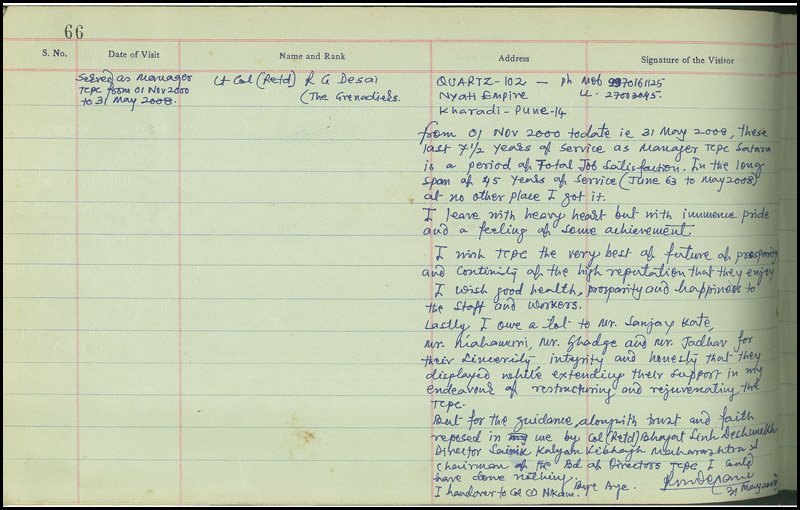 66
S. No.
Date of Visit
Name and Rank
Address
Signature of the Visitor
Served as Manager
TCPC from 01 Nov 2000
to 31 May 2008.
Lt Col (Retd) R G Desai
(The Grenadiers.
QUARTZ-102 — Ph Mob 9970161125
Nyati Empire
27003045.
Kharadi - Pune-14
from 01 Nov 2000 todate ie 31 May 2008, these
last 7 1/2 years of service as Manager TCPC Satara
is a period of Total Job Satisfaction. In the long
span of 45 years of service (June 63 to May 2008)
at no other place I got it.
I leave with heavy heart but with immence pride
and a feeling of some achievement.
I wish TCPC the very best of future of prosperity
and continuity of the high reputation that they enjoy
I wish good health, prosperity and happiness to
the staff and workers.
Lastly I owe a lot to Mr. Sanjay Kate,
Mr. Mr. Ghadge and Mr. Jadhav for
their sincerity integrity and honesty that they
displayed while extending their support in my
endeavour of restructuring and rejuvenating the
TCPC.
But for the guidance, alongwith trust and faith
reposed in me by Col (Retd) Bhagat Sinh Deshmukh
Director Sainik Kalyan Vibhagh Maharashtra &
chairman of the Bd of Directors TCPC I could
have done nothing.
I handover to Col CD Nikam. Bye Bye.
31 May 2008